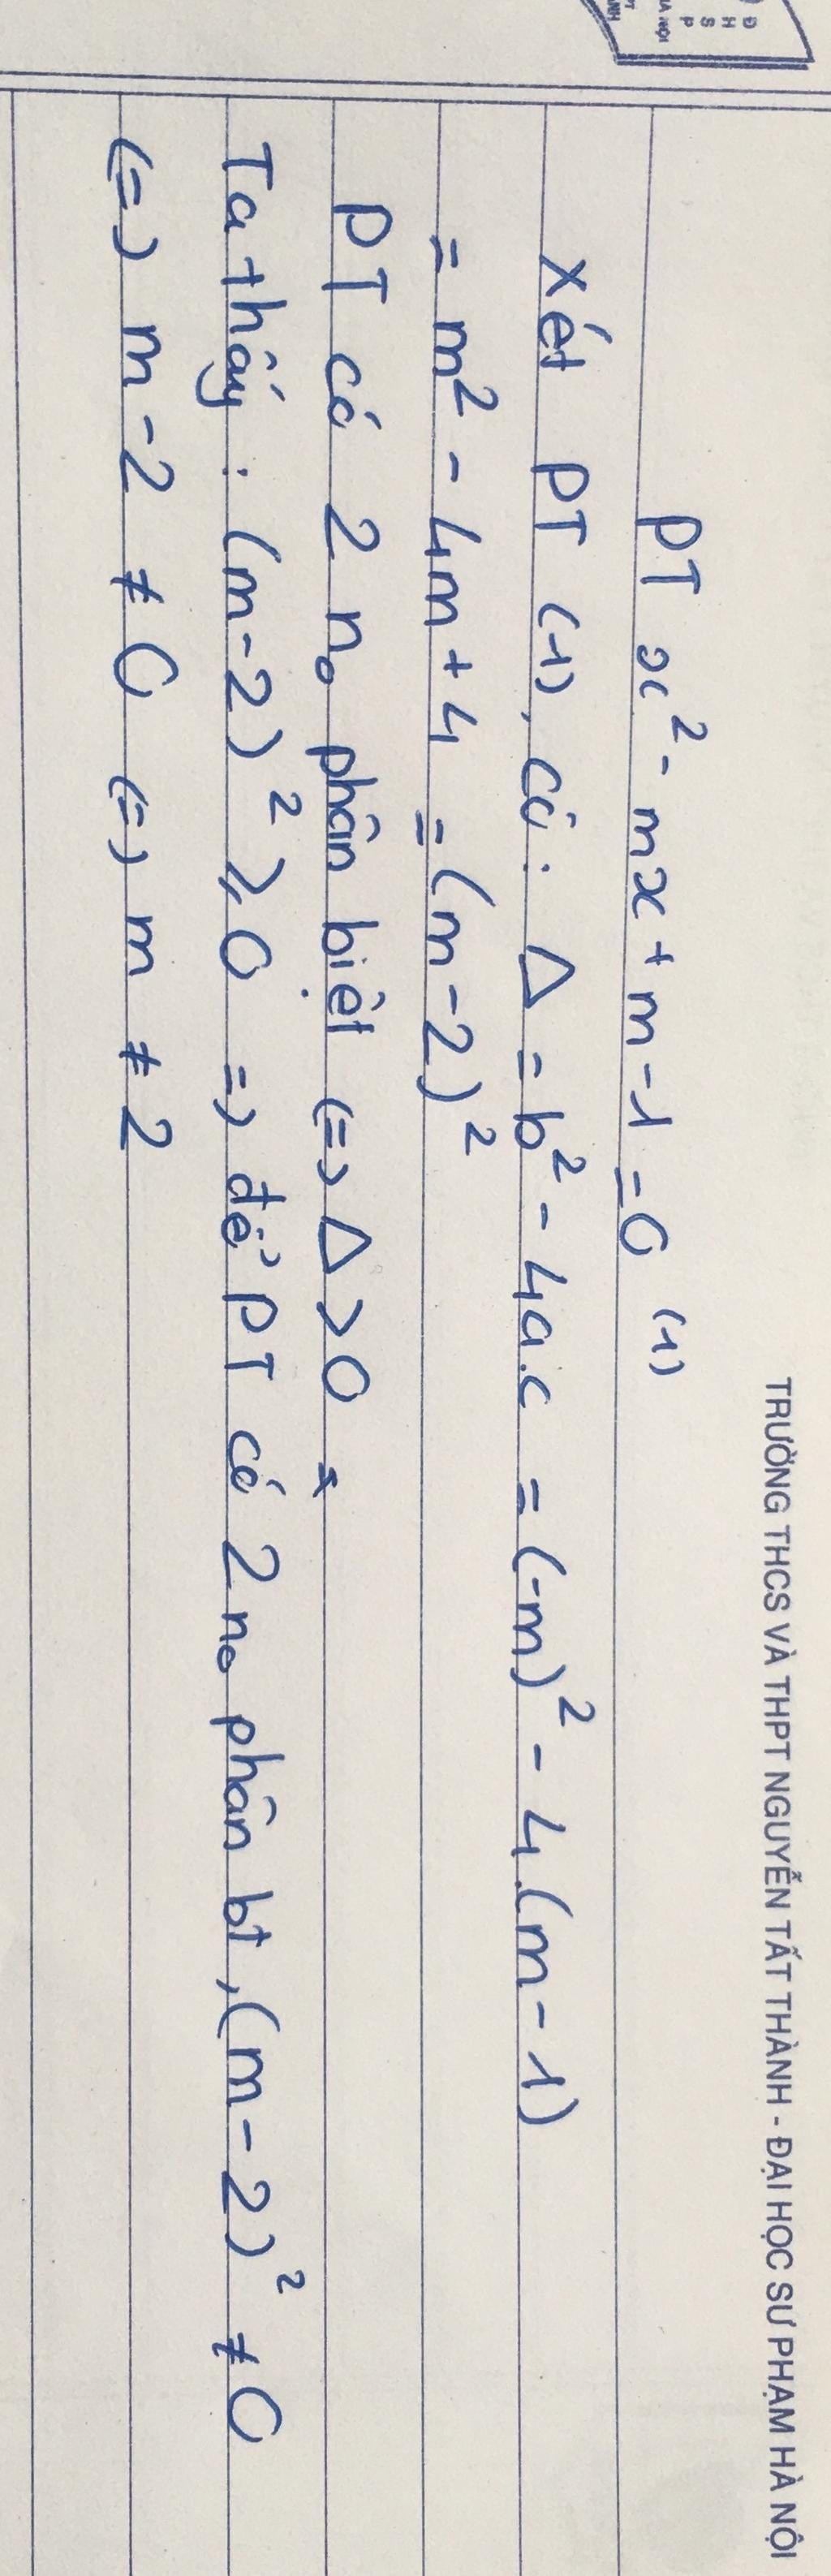 TRƯỜNG THCS VÀ THPT NGUYỄN TẤT THÀNH - ĐẠI HỌC SƯ PHẠM HÀ NỘI
PT x² - mx + m - 1 = 0 (1)
Xét PT (1), có: Δ = b² - 4a.c = (-m)² - 4.(m - 1)
= m² - 4m + 4 = (m - 2)²
PT có 2 n₀ phân biệt (=> Δ > 0
Ta thấy : (m - 2)² ⩾ 0 => để PT có 2 n₀ phân bt, (m - 2)² ≠ 0
(=) m - 2 ≠ 0 (=) m ≠ 2